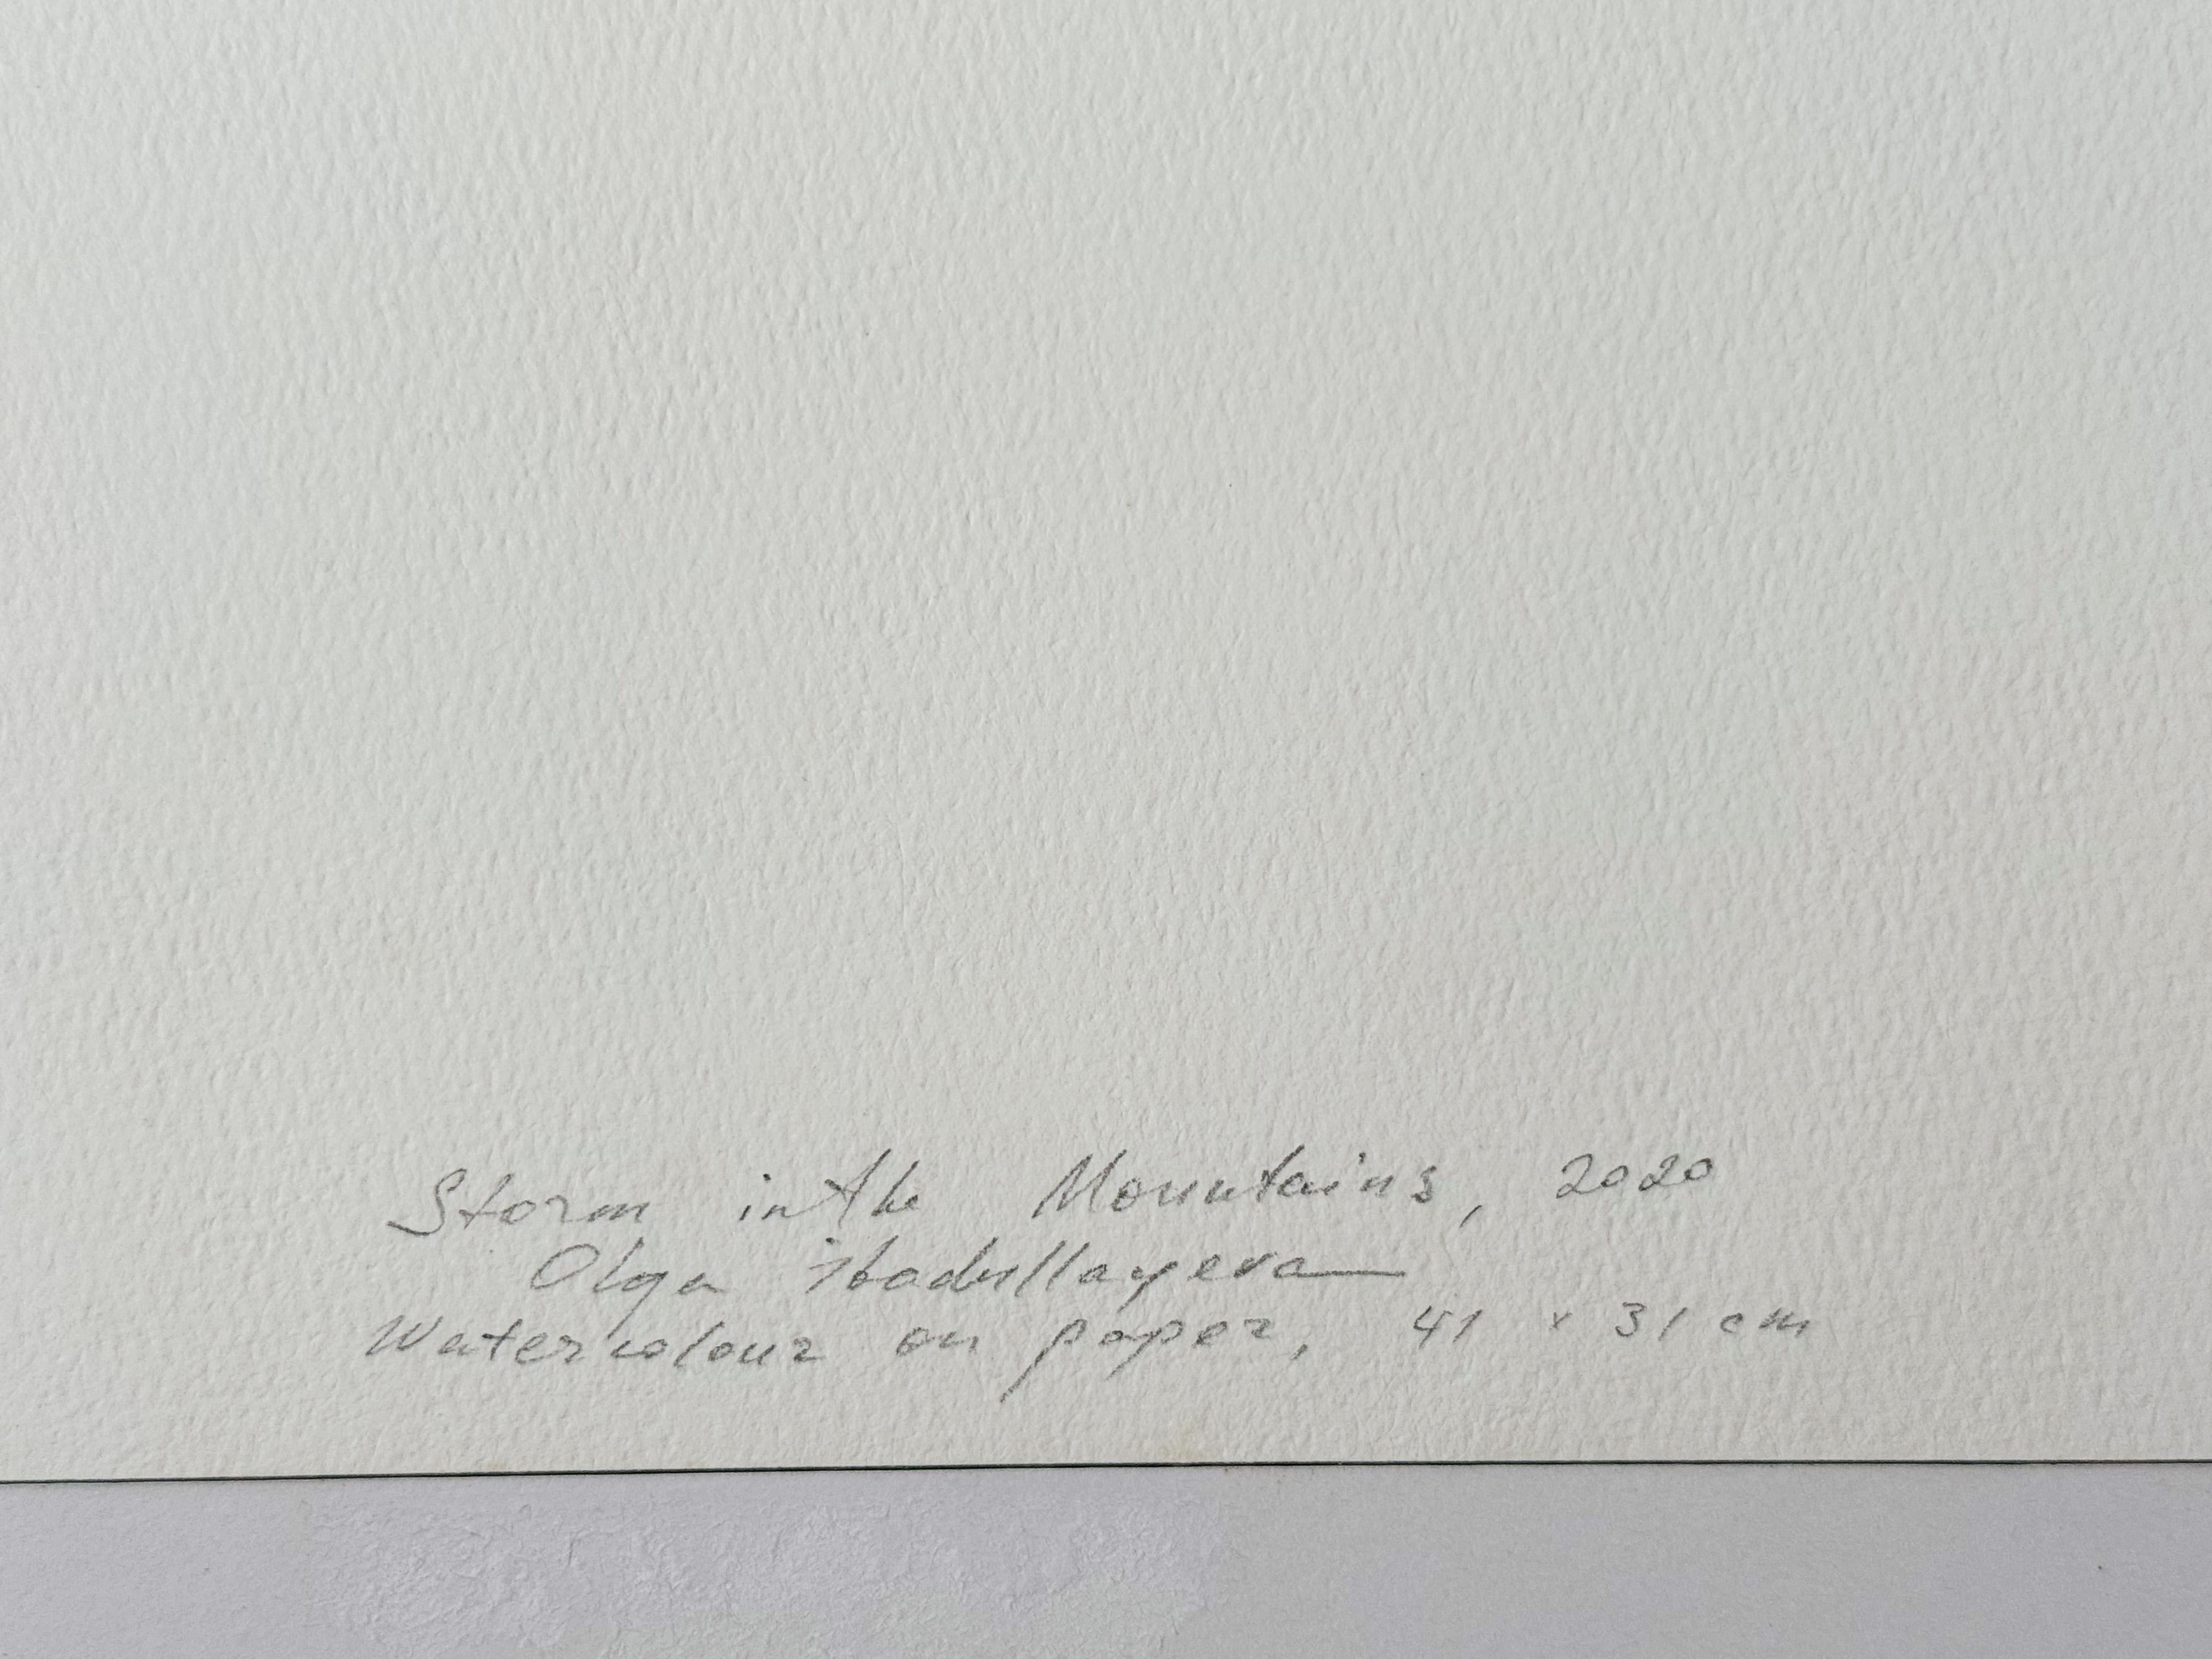 Storm in the Mountains, 2020
Olga ibadullayeva
Watercolour on paper, 41 x 31 cm